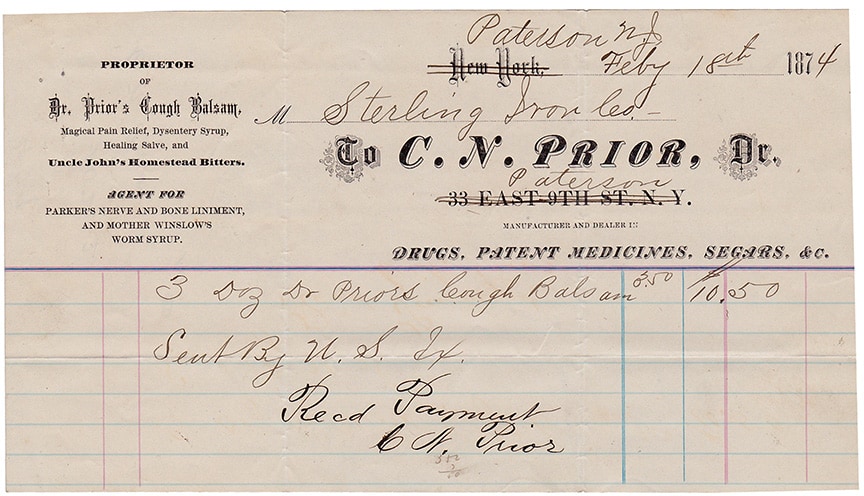 PROPRIETOR
OF
Dr. Prior's Cough Balsam,
Magical Pain Relief, Dysentery Syrup,
Healing Salve, and
Uncle John's Homestead Bitters.
AGENT FOR
PARKER'S NERVE AND BONE LINIMENT,
AND MOTHER WINSLOW'S
WORM SYRUP.
Paterson NJ
New York, Feby 18th 1874
M Sterling Iron Co.
To C. N. PRIOR, Dr.
Paterson
33 EAST 9TH ST. N. Y.
MANUFACTURER AND DEALER IN
DRUGS, PATENT MEDICINES, SEGARS, &c.
3 Doz Dr Priors Cough Balsam 3.50 $10.50
Sent By U. S. Ex.
Recd Payment
C N. Prior